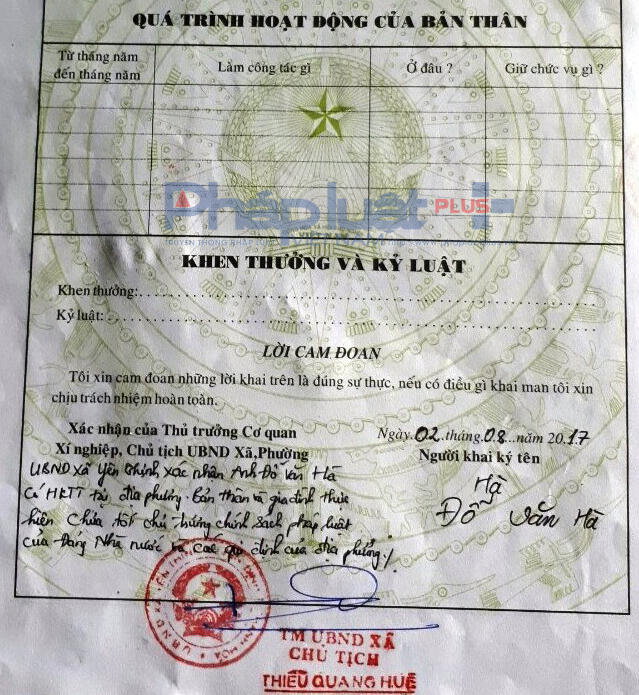 QUÁ TRÌNH HOẠT ĐỘNG CỦA BẢN THÂN
Từ tháng năm đến tháng năm
Làm công tác gì
Ở đâu ?
Giữ chức vụ gì ?
Pháp luật PLUS
VIỆT NAM
KHEN THƯỞNG VÀ KỶ LUẬT
Khen thưởng:
Kỷ luật:
LỜI CAM ĐOAN
Tôi xin cam đoan những lời khai trên là đúng sự thực, nếu có điều gì khai man tôi xin
chịu trách nhiệm hoàn toàn.
Xác nhận của Thủ trưởng Cơ quan
Xí nghiệp, Chủ tịch UBND Xã,Phường
Ngày.02.tháng.08...năm 2017
Người khai ký tên
UBND xã Yên Thịnh xác nhận Anh Đỗ Văn Hà
Có HKTT tại địa phương. Bản thân và gia đình thực
hiện chưa tốt chủ trương chính sách pháp luật
của Đảng Nhà nước và các qui định của địa phương./.
Hà
Đỗ Văn Hà
TM UBND XÃ
CHỦ TỊCH
THIỀU QUANG HUẾ